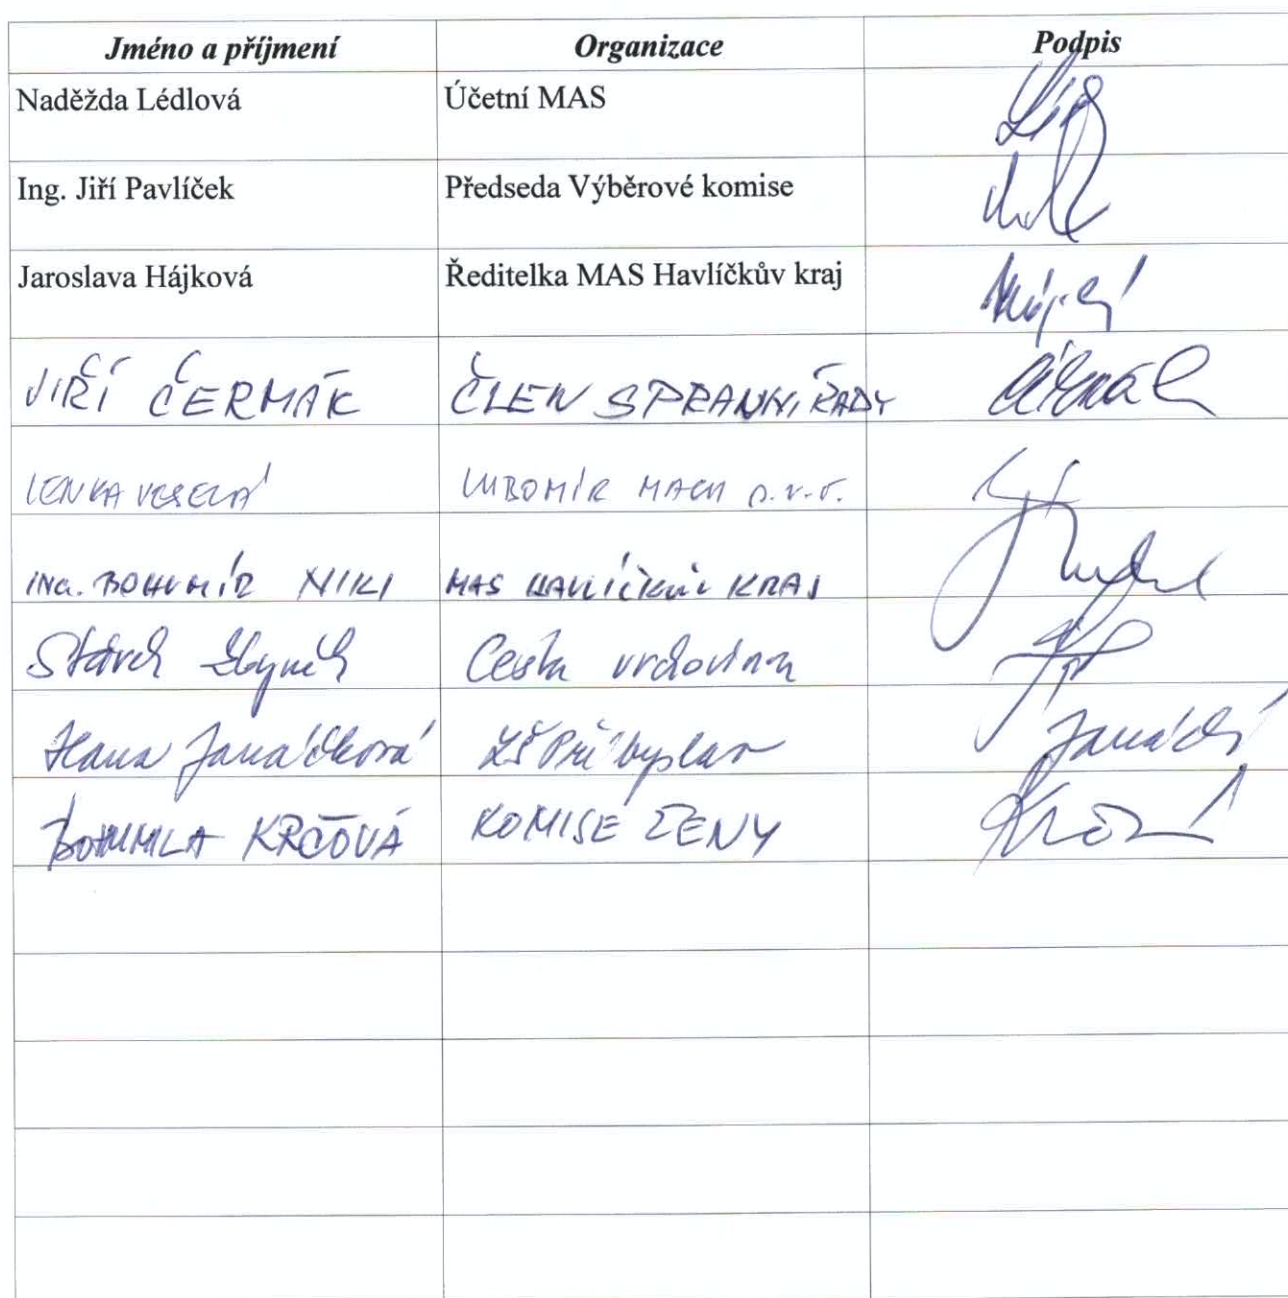 Jméno a příjmení Organizace Podpis
Naděžda Lédlová Účetní MAS
Ing. Jiří Pavlíček Předseda Výběrové komise
Jaroslava Hájková Ředitelka MAS Havlíčkův kraj
JIŘÍ ČERMÁK ČLEN SPRÁVNÍ RADY
LENKA VESELÁ LUBOMÍR MACH
ING. BOHUMÍR NIKL MAS HAVLÍČKŮV KRAJ
Stárek Zbyněk Cesta vrchovinou
Hana Janáčková ZŠ Přibyslav
BOHUMILA KRČOVÁ KOMISE ŽENY